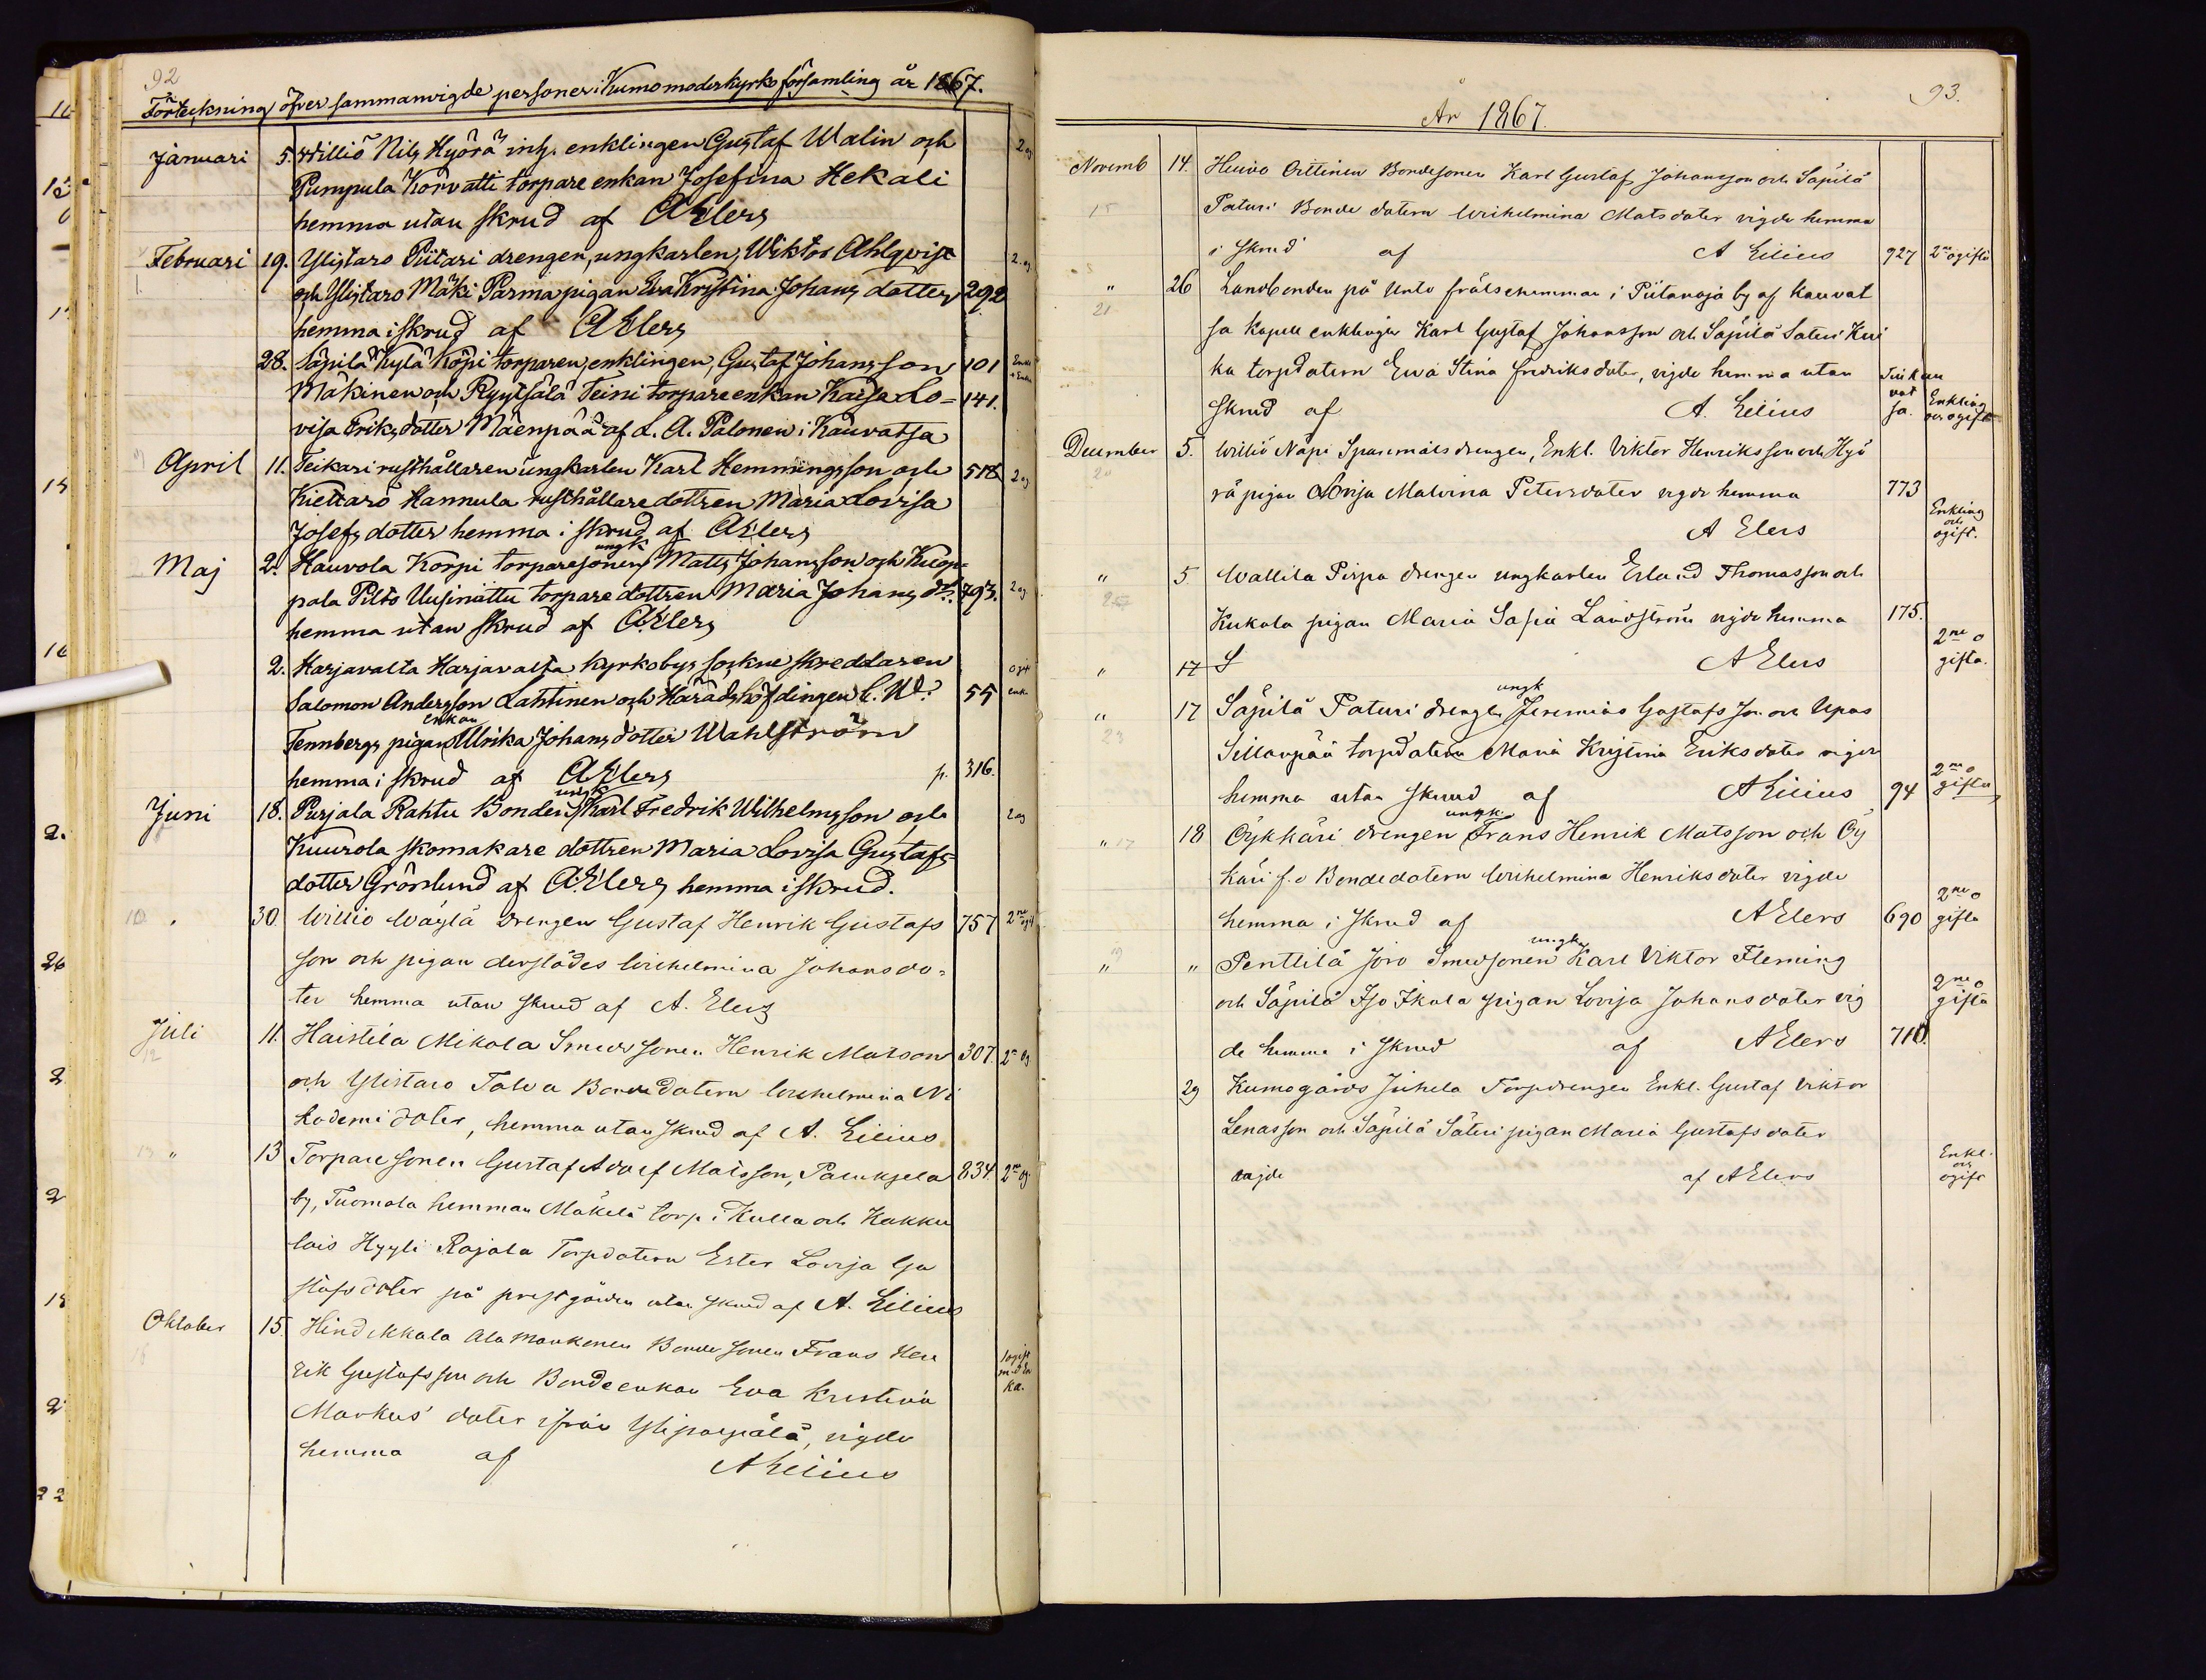 92
Förteckning öfver sammanvigde personer i Kumo moderkyrko församling år 1867.
Januari 5. Williö Nils Hyörä inh. enklingen Gustaf Walin och
Pumpula Korvatti torpare enkan Josefina Hekali
hemma utan skrud af A Elers
Februari 19. Ylistaro Piitari drengen, ungkarlen, Wiktor Ahlqvist 2. og
och Ylistaro Mäki Parma pigan Eva Kristina Johans dotter 292
hemma i skrud af A Elers
28. Säpilä Kylä Köpi torparen, enklingen, Gustaf Johansson 101
Mäkinen och Ryytsälä Teini torpare enkan Kaisa Lo= 141.
visa Eriks dotter Mäenpää af L. A. Palonen i Kauvatsa
April 11. Teikari rusthållaren ungkarlen Karl Hemmingsson och 518 2 og
Kiettaro Hannula rusthållare dottren Maria Lovisa
Josefs dotter hemma i skrud af A Elers
ungk
Maj 2. Hauvola Korpi torparesonen Matts Johansson och Kuop=
pala Pilts Uusiniittu torpare dottren Maria Johans dr. 793. 2 og
hemma utan skrud af A Elers
2. Harjavalta Harjavalta kyrkobys sockne skreddaren ogift
Salomon Andersson Lahtinen och Häradshöfdingen C. Wd. 55 enk
enkan
Tennbergs pigan Ulrika Johans dotter Wahlström
hemma i skrud af A Elers p. 316.
ungk
Juni 18. Purjala Rahtu Bonden Karl Fredrik Wilhelmsson och 2 og
Kuurola skomakare dottren Maria Lovisa Gustafs=
dotter Grönlund af A. Elers hemma i skrud.
" 30. Williö Wäylä drengen Gustaf Henrik Gustafs 757 2ne ogift
son och pigan derstädes Wilhelmina Johansdo=
ter hemma utan skrud af A. Elers
Juli 11. Haistila Mikola Smedsonen Henrik Matsson 307. 2ne og
och Ylistaro Talva Bondedotern Wilhelmina Ni
kodemi doter, hemma utan skrud af A. Lilius
" 13 Torparesonen Gustaf Adolf Matsson, Paluksela 834. 2ne og
by, Tuomola hemman Mäkelä torp i Kulla och Kakku
lais Hyyli Rajala Torpdotern Ester Lovisa Gu
stafsdoter på prestgården utan skrud af A. Lilius
Oktober 15. Hindikkala Ala Maukonen Bondesonen Frans Hen
rik Gustafsson och Bondeenkan Eva Kristina 1 ogift med En ka.
Markus doter ifrån Ylipaspälä, vigde
hemma af A Lilius
93.
År 1867.
Novemb 14. Huivo Orttinen Bondesonen Karl Gustaf Johansson och Säpilä
Paturi Bonde dotern Wilhelmina Matsdoter vigde hemma
i skrud af A Lilius 927 2ne ogifta
" 26 Landbonden på Unto frälsehemman i Piitanoja by af Kauvat
sa kapell enklingen Karl Gustaf Johansson och Säpilä Sateri Kui
ka torpdotern Eva Stina Fredriksdoter, vigde hemma utan
skrud af A. Lilius Enkling och ogift
December 5. Williö Näpi Sparemäts drengen, Enkl. Viktor Henriksson och Hyö
rä pigan Lovisa Malvina Petersdoter vigde hemma 773
A Elers Enkling och ogift.
" 5 Wallila Pirpa drengen ungkarlen Erland Thomasson och
Kukola pigan Maria Sofia Landström vigde hemma 175.
" 17 S A Elers 2ne ogifta.
ungk
" 17 Säpilä Paturi drengen Jeremias Gustafsson och Upas
Sillanpää torpdotern Maria Kristina Eriksdoter vigde
hemma utan skrud af A Lilius 94 2ne ogifta
ungk
" 18 Öykkäri drengen Frans Henrik Matsson och Öy
käri f.d Bondedotern Wilhelmina Henriksdoter vigde
hemma i skrud af A Elers 690 2ne ogifta
ungk
" " Penttilä Joro Smedsonen Karl Viktor Fleming
och Säpilä Iso Ikala pigan Lovisa Johansdoter vig 2ne ogifta
de hemma i skrud af A Elers 710.
29 Kumogårds Juhela Torpdrengen Enkl. Gustaf Viktor
Lenasson och Säpilä Säteri pigan Maria Gustafsdoter
vigde af A Elers Enkl. och ogift